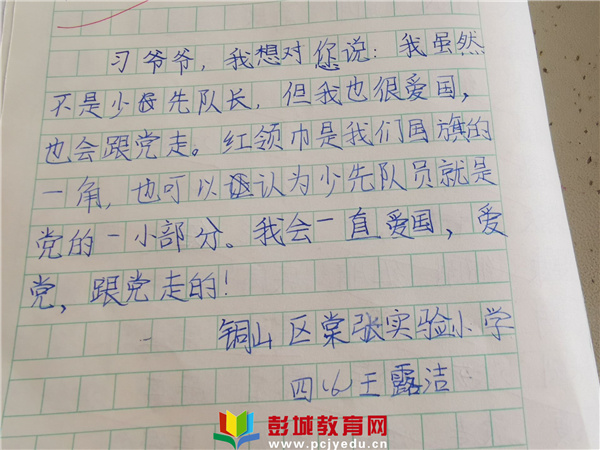 习爷爷，我想对您说：我虽然
不是少先队长，但我也很爱国，
也会跟党走。红领巾是我们国旗的
一角，也可以认为少先队员就是
党的一小部分。我会一直爱国，爱
党，跟党走的！
铜山区棠张实验小学
四 王露洁
彭城教育网
www.pcjyedu.cn